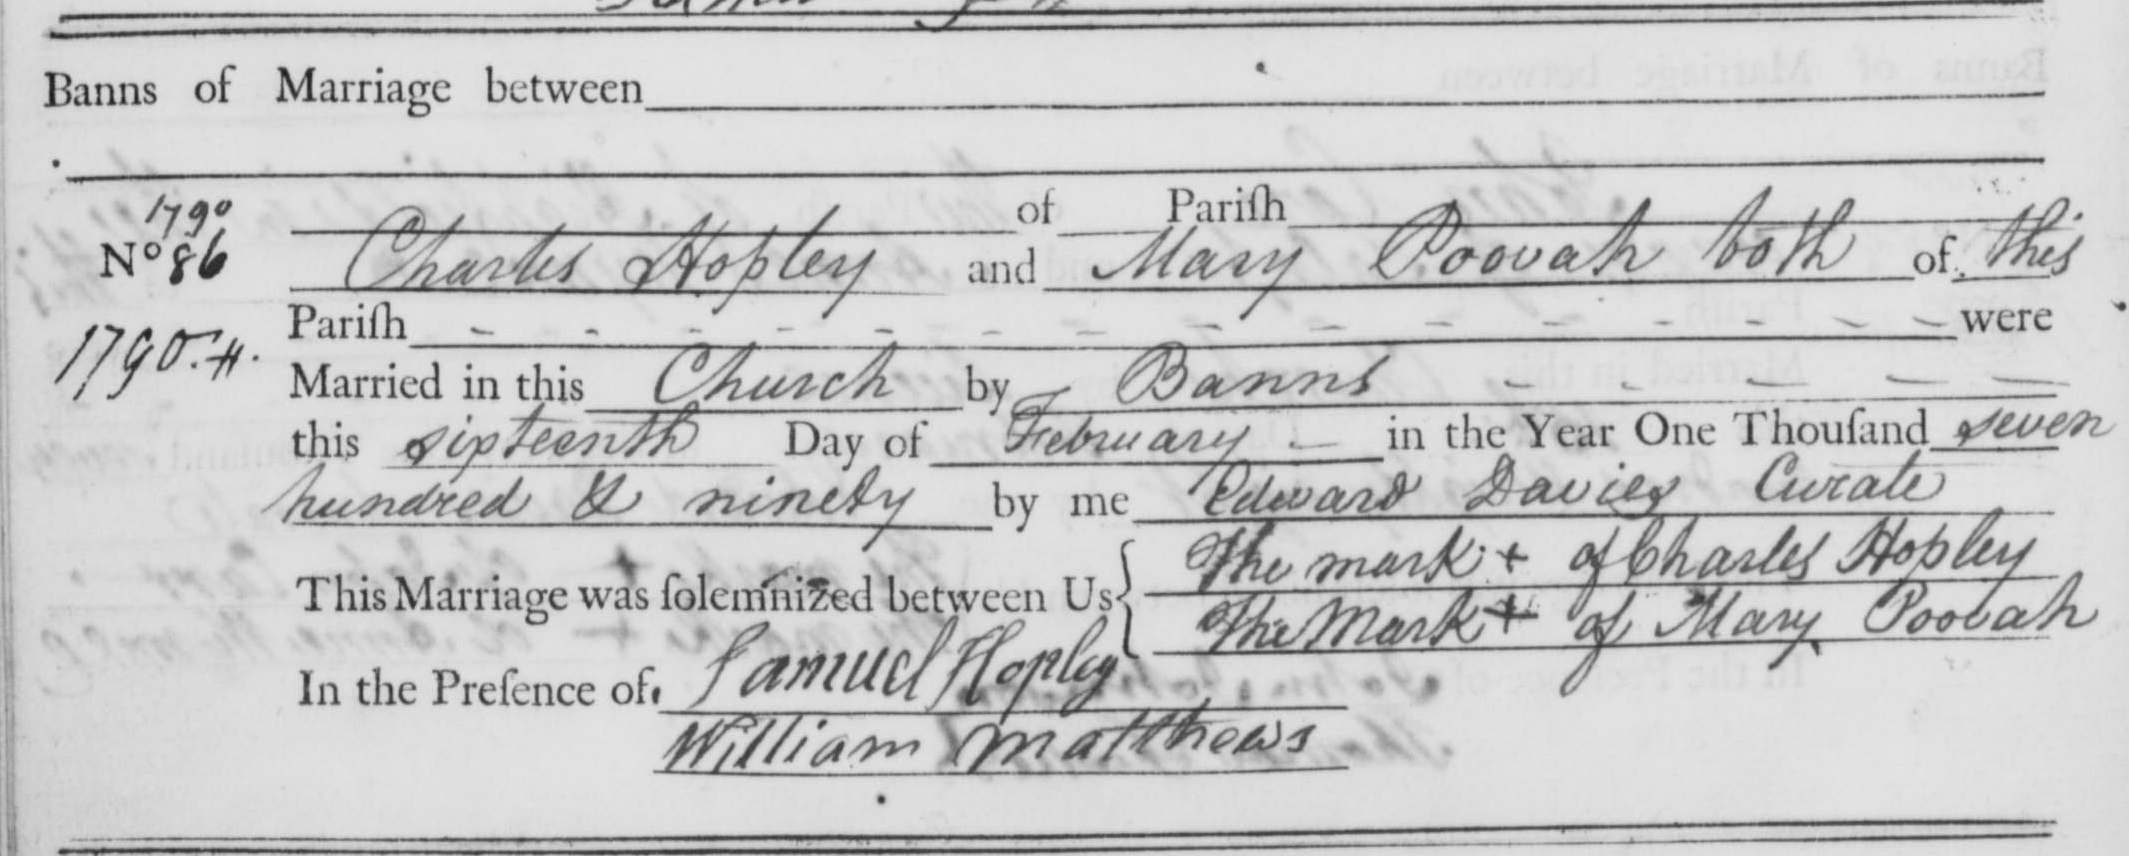 Banns of Marriage between
1790
of Pariſh
No 86 Charles Hopley and Mary Poovah both of this
Pariſh - - - - - - - - - - - - - were
1790. H.
Married in this Church by Banns - - - - -
this sixteenth Day of February - in the Year One Thouſand seven
hundred & ninety by me Edward Davies Curate
This Marriage was ſolemnized between Us { The mark + of Charles Hopley
The Mark + of Mary Poovah
In the Preſence of Samuel Hopley
William Matthews